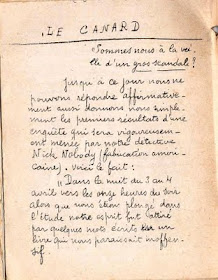 LE CANARD
Sommes nous à la vei.
lle d'un gros scandale ?
Jusqu'à ce jour nous ne
pouvons répondre affirmative-
ment aussi donnons nous simple-
ment les premiers résultats d'une
enquête qui sera vigoureusem-
ent menée par notre détective
Nick Nobody (fabrication améri-
caine). Voici le fait :
" Dans la nuit du 3 au 4
avril vers les onze heures du soir
alors que nous étions plongé dans
l'étude notre esprit fut attiré
par quelques mots écrits sur un
livre qui nous paraissait inoffen-
sif.